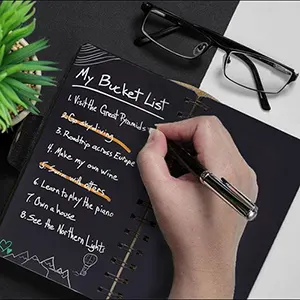 My Bucket List
1. Visit the Great Pyramids
2. Go sky diving
3. Roadtrip across Europe
4. Make my own wine
5. Swim with otters
6. Learn to play the piano
7. Own a house
8. See the Northern Lights